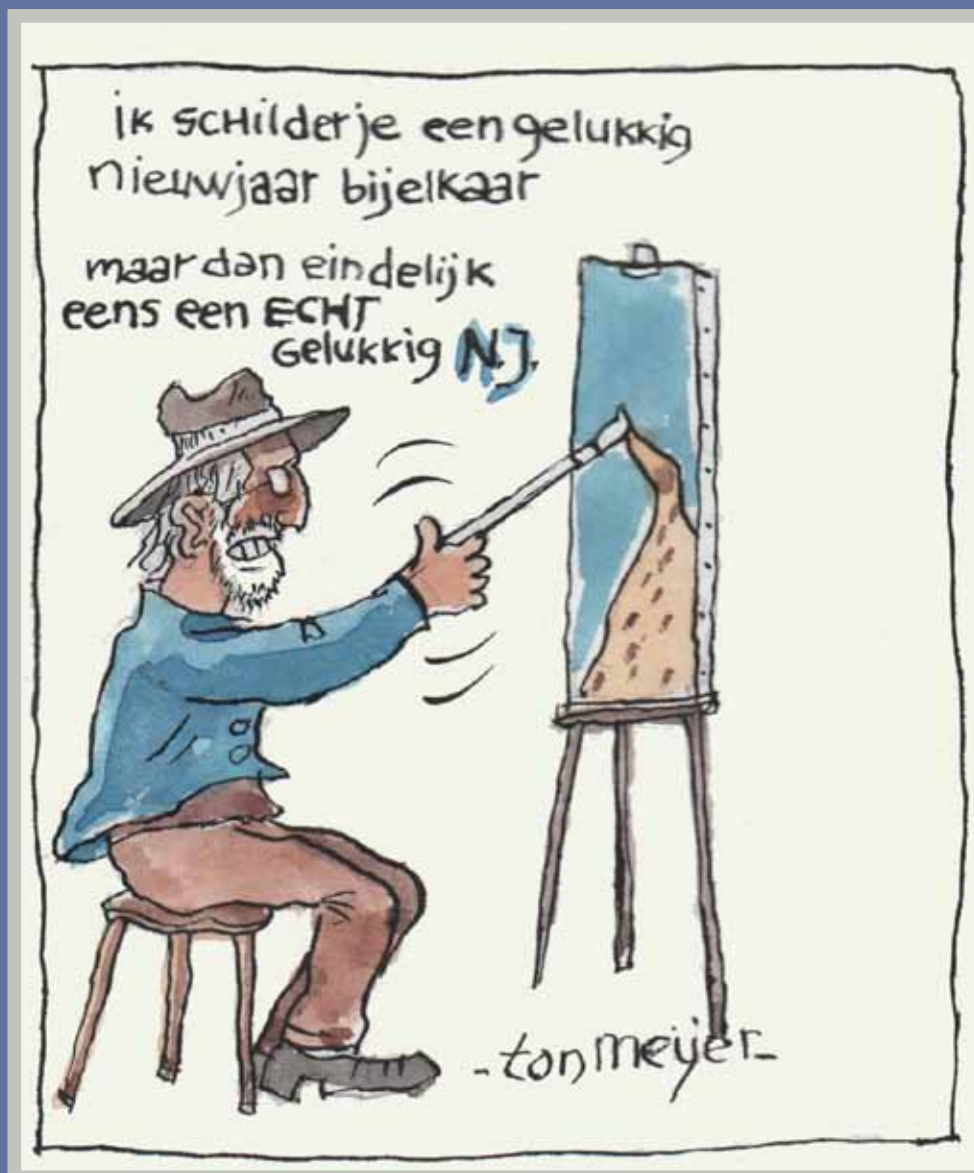 ik schilder je een gelukkig
nieuwjaar bijelkaar
maar dan eindelijk
eens een ECHT
gelukkig N.J.
-ton meijer-